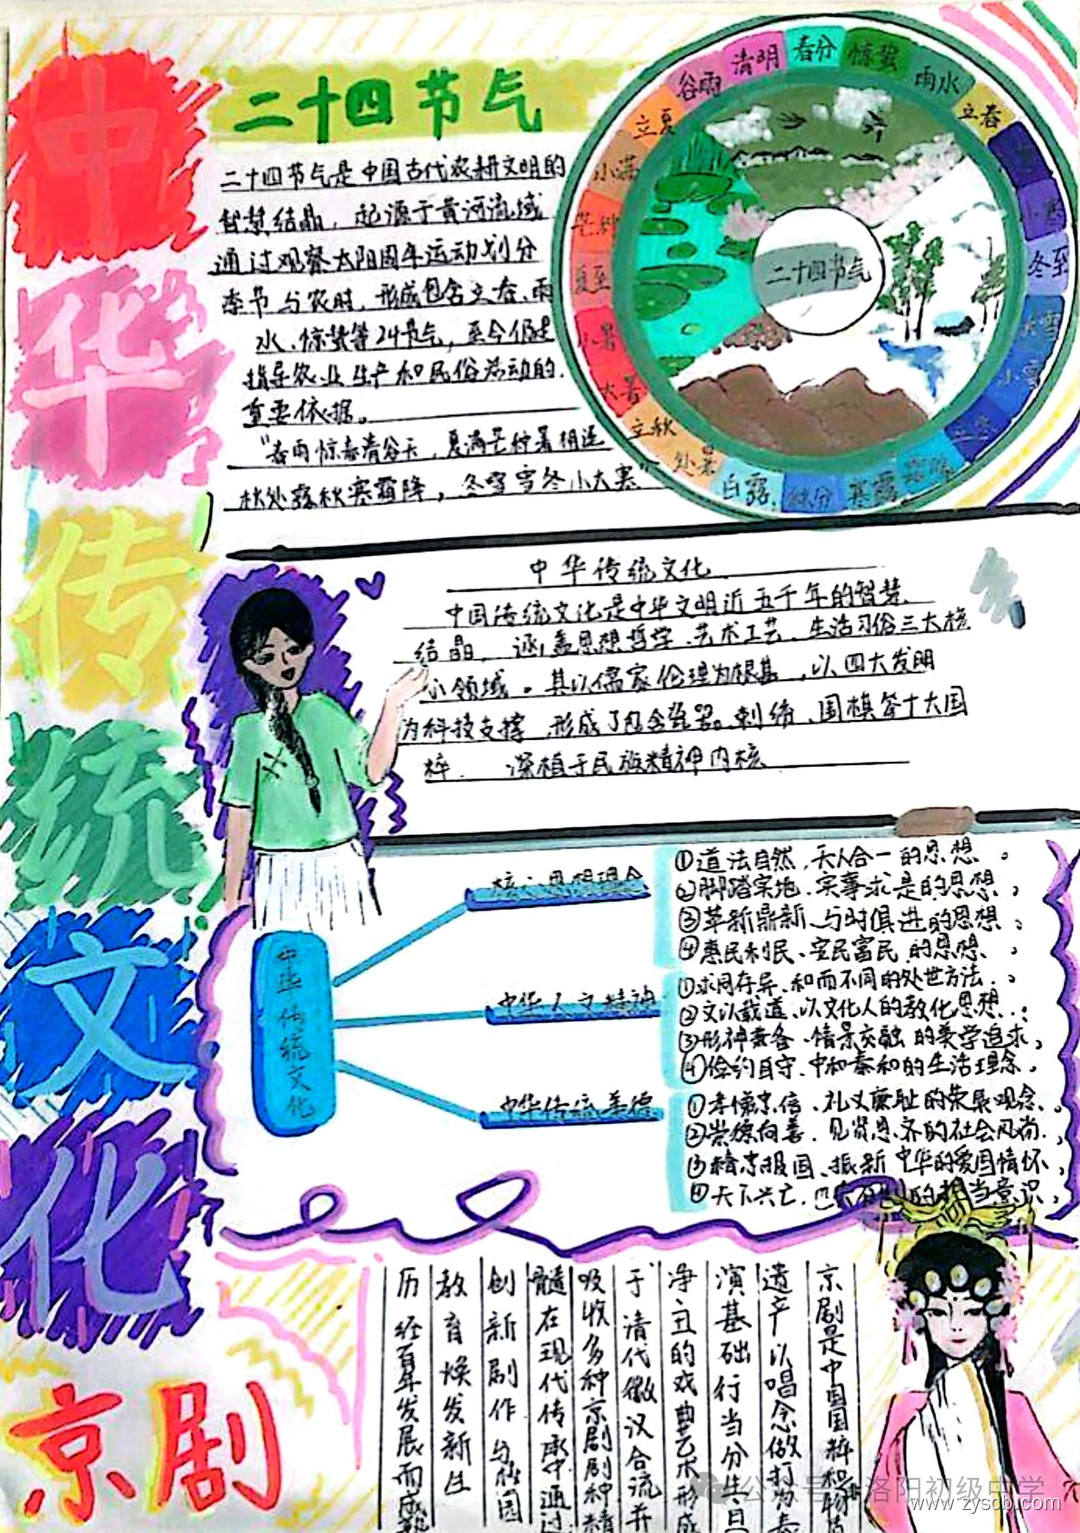 中
华
传
统
文
化
二十四节气
二十四节气是中国古代农耕文明的
智慧结晶，起源于黄河流域
通过观察太阳周年运动划分
季节与农时，形成包含立春、雨
水、惊蛰等24节气，至今仍是
指导农业生产和民俗活动的
重要依据。
"春雨惊春清谷天，夏满芒种暑相连
秋处露秋寒霜降，冬雪雪冬小大寒"
春分
惊蛰
雨水
立春
小寒
冬至
大雪
小雪
霜降
寒露
秋分
白露
处暑
立秋
大暑
小暑
夏至
芒种
小满
立夏
谷雨
清明
二十四节气
中华传统文化
中国传统文化是中华文明近五千年的智慧
结晶，涵盖思想哲学、艺术工艺、生活习俗三大核
心领域。其以儒家伦理为根基，以四大发明
为科技支撑，形成了包含瓷器、刺绣、围棋等十大国
粹，深植于民族精神内核
中华传统文化
核心思想理念
①道法自然、天人合一的思想。
②脚踏实地、实事求是的思想，
③革新鼎新、与时俱进的思想、
④惠民利民、安民富民、的思想、
中华人文精神
①求同存异、和而不同的处世方法、
②文以载道、以文化人的教化思想、
③形神兼备、情景交融的美学追求，
④俭约自守、中和泰和的生活理念、
中华传统美德
①孝悌忠信、礼义廉耻的荣辱观念、
②崇德向善、见贤思齐的社会风尚、
③精忠报国、振新中华的爱国情怀、
④天下兴亡、匹夫有责的担当意识、
京剧
京剧是中国国粹和
遗产以唱念做打为表
演基础行当分生旦
净丑的戏曲艺术形成
于清代徽汉合流并
吸收多种京剧剧种精
髓在现代传承中通过
创新剧作与校园
教育焕发新生
历经百年发展而成
公众号 洛阳初级中学
www.zyscb.com